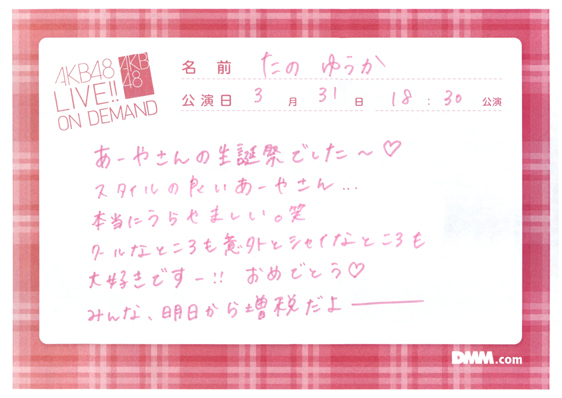 AKB48
LIVE!!
ON DEMAND
AKB
48
名 前 たの ゆうか
公演日 3 月 31 日 18 : 30 公演
あーやさんの生誕祭でした〜♡
スタイルの良いあーやさん...
本当にうらやましい。笑
クールなところも意外とシャイなところも
大好きですー!! おめでとう♡
みんな、明日から増税だよ――
DMM.com